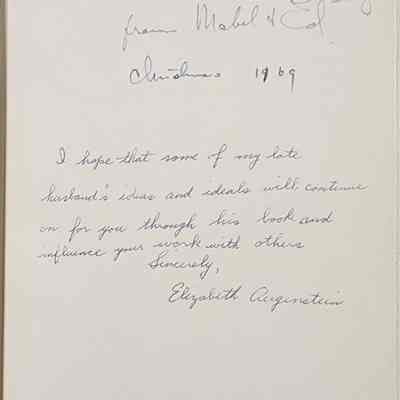 from Mabel & Ed
Christmas 1969
I hope that some of my late
husband's ideas and ideals will continue
on for you through his book and
influence your work with others
Sincerely,
Elizabeth Augenstein